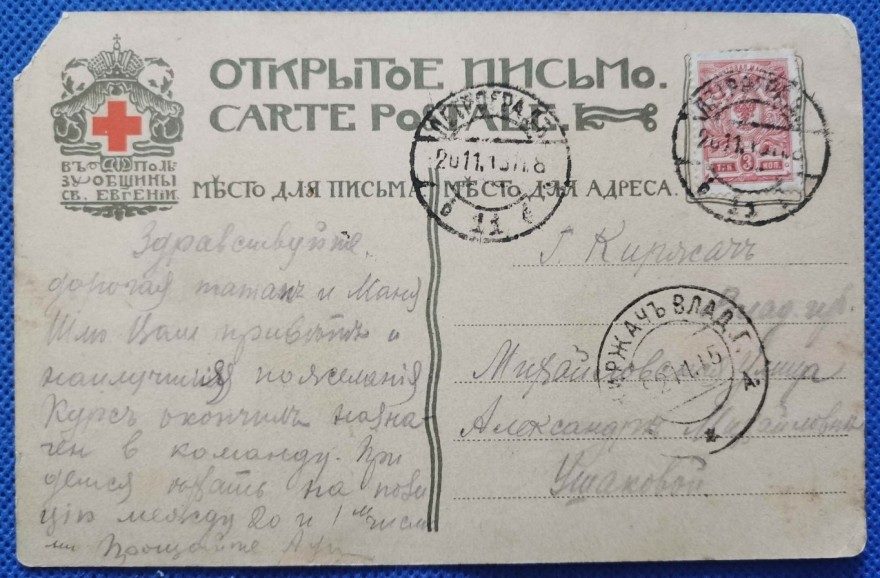 ОТКРЫТОЕ ПИСЬМО.
CARTE POSTALE
ВЪ ПОЛЬ
ЗУ ОБЩИНЫ
СВ. ЕВГЕНІИ.
МѢСТО ДЛЯ ПИСЬМА
МѢСТО ДЛЯ АДРЕСА.
ПЕТРОГРАДЪ
26.11.15
11
ПЕТРОГРАДЪ
26.11.15
11
3 КОП.
Здравствуйте,
дорогая и Маня
Шлю Вам привѣтъ и
наилучшія пожеланія
Курсъ окончилъ назна-
чен в команду. При
дется на пози
цію между 20 и 1 числа
ми Прощайте
Г. Киржачъ
Влад. губ.
Михайловская улица
Александрѣ Михайловнѣ
Ушаковой
КИРЖАЧЪ ВЛАД. Г.